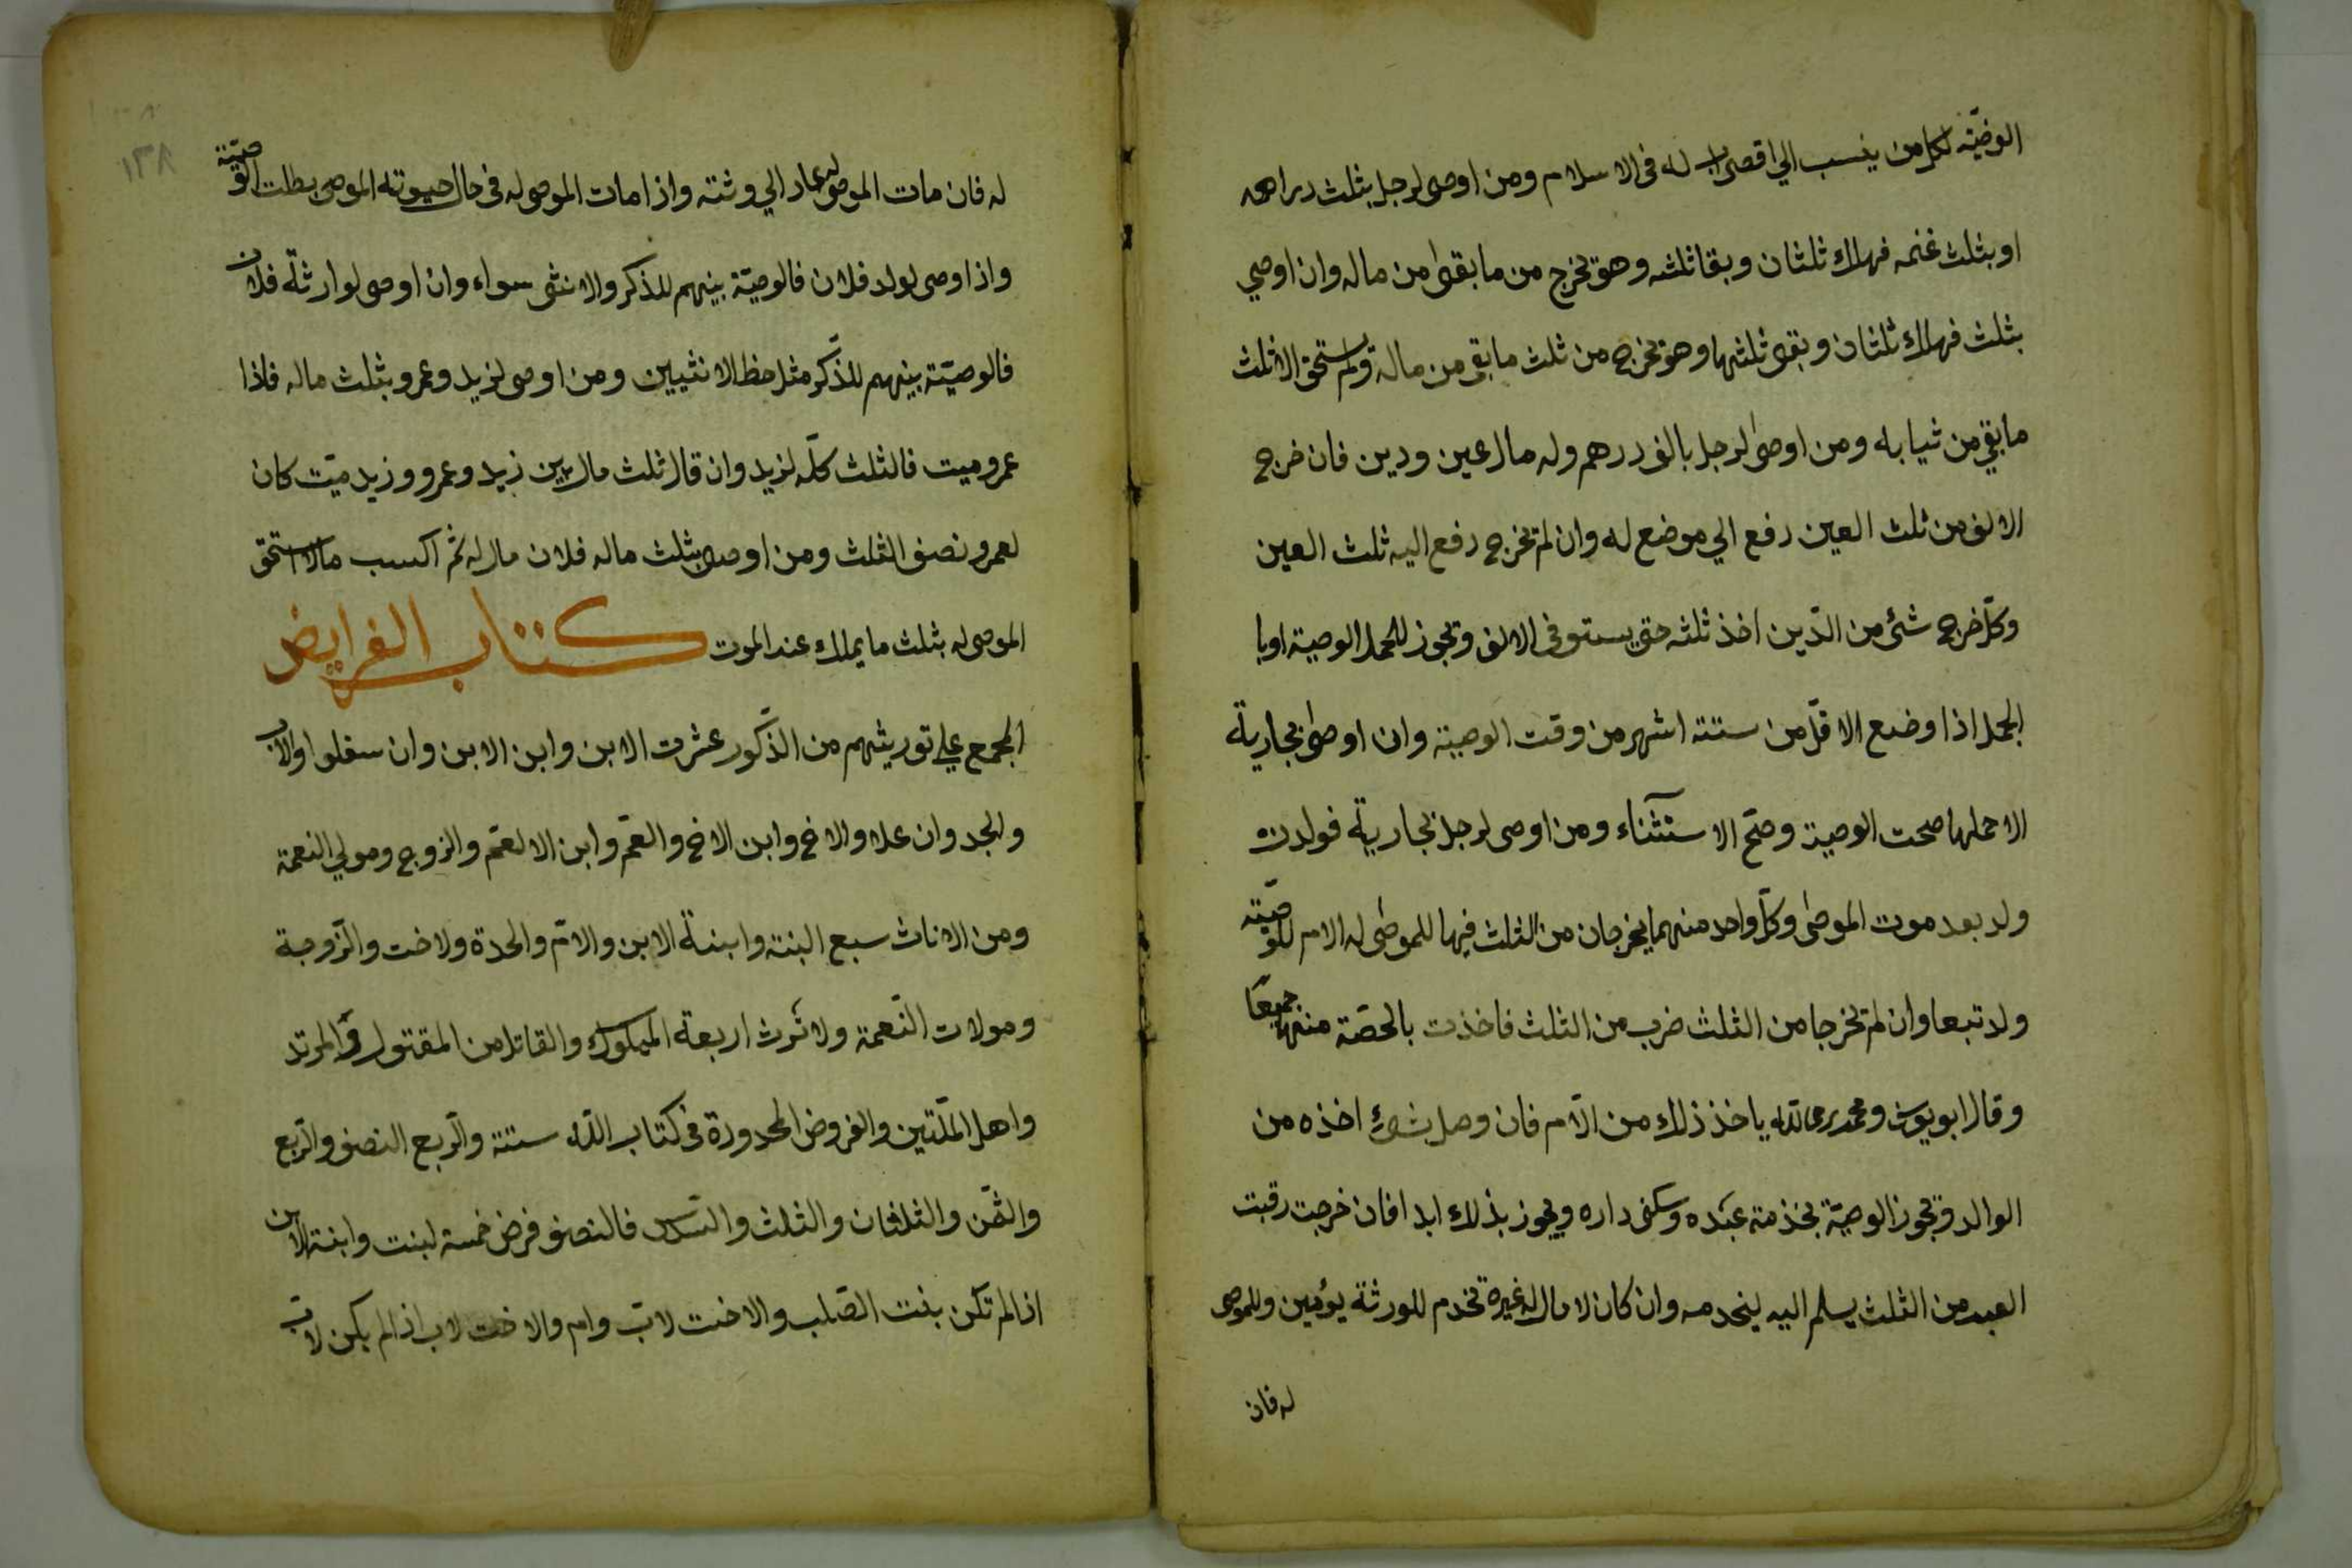 الوصيّة لكل من ينسب الي اقصى اب له فى الاسلام ومن اوصى لرجل بثلث دراهمه
او بثلث غنمه فهلك ثلثان وبقا ثلثه وهو تخرج من ما بقى من ماله وان اوصي
بثلث فهلك ثلثان وبقى ثلثها وهو تخرج من ثلث ما بقى من مالة ولم يستحق الا ثلث
ما بقي من ثيابه ومن اوصى لرجل بالف درهم وله مال عين ودين فان خرج
الالف من ثلث العين دفع الي موضع له وان لم تخرج دفع اليه ثلث العين
وكلّ خرج شئ من الدّين اخذ ثلثه حتى يستوفى الالف وتجوز للحمل الوصية اوبا
الحمل اذا وضع الاقلّ من ستة اشهر من وقت الوصية وان اوصى بجارية
الا حملها صحت الوصية وصحّ الاستثناء ومن اوصى لرجل بجارية فولدت
ولد بعد موت الموصى وكل واحد منهما يخرجان من الثلث فيها للموصى له الام للوصيّة
ولد تبعا وان لم تخرجا من الثلث ضرب من الثلث فاخذت بالحصّة منهما جميعًا
وقال ابو يوسف ومحمد رحمالله ياخذ ذلك من الّام فان وصل بشئ اخذه من
الوالد وتجوز الوصيّة بخذمة عبده وسكنى داره ويجوز بذلك ابدا فان خرجت رقبت
العبد من الثلث يسلم اليه ليخدمه وان كان لا مال له غيره تخدم للورثة يومين وللموصى
له فان
١٣٨
له فان مات الموصى له عاد الي ورثته واذا مات الموصى له فى حال حيوته الموصى بطلت الوصيّة
واذا اوصى لولد فلان فالوصيّة بينهم للذكر والانثى سواء وان اوصى لوارثة فلان
فالوصيّة بينهم للذّكر مثل حظ الانثيين ومن اوصى لزيد وعمرو بثلث ماله فاذا
عمرو ميت فالثلث كلّه لزيد وان قال ثلث مال بين زيد وعمرو وزيد ميّت كان
لعمرو نصف الثلث ومن اوصى بثلث ماله فلان مال له ثم اكسب مالا استحق
الموصى له بثلث ما يملك عند الموت كتاب الفرايض
المجمع علي توريثهم من الذّكور عشرت الابن وابن الابن وان سفلوا والاب
والجد وان علا والاخ وابن الاخ والعمّ وابن الا لعمّ والزوج ومولي النعمة
ومن الاناث سبع البنته وابنة الابن والامّ والحدة ولاخت والزّوجة
ومولات النّعمة ولا ثرث اربعة المملوك والقاتل من المقتول والمرتد
واهل الملّتين والفروض المحدودة فى كتاب اللّه ستة والرّبع النصف والرّبع
والثمّن والثلثان والثلث والسّدس فالنصف فرض خمسة لبنت وابنة الابن
اذا لم تكن بنت الصّلب والاخت لابّ وام والاخت لاب اذ الم يكن لابّ